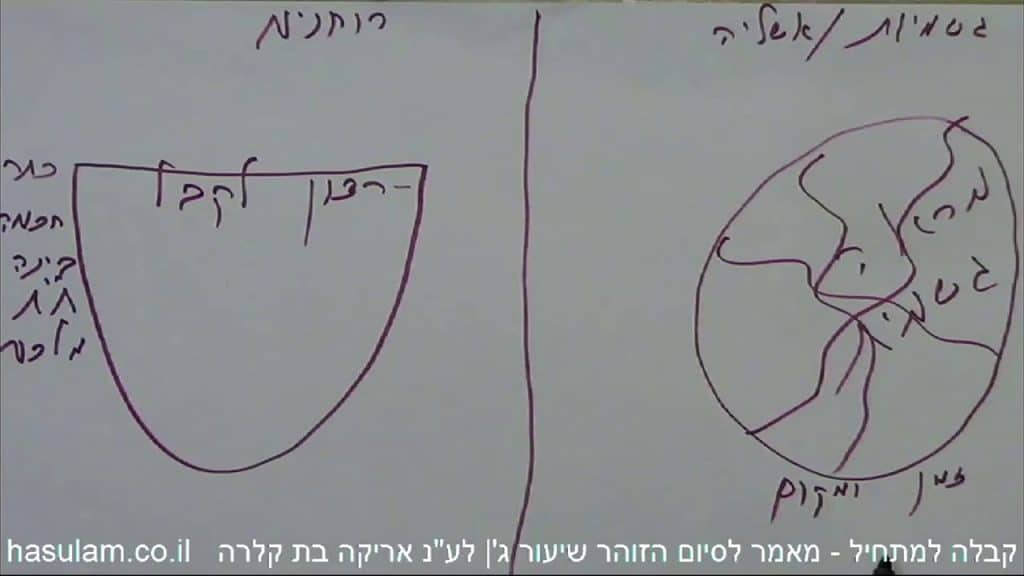 גשמיות / אשליה
מרכז
גשמי
זמן ומקום
רוחניות
-רצון לקבל
כתר
חכמה
בינה
ת"ת
מלכות
קבלה למתחיל - מאמר לסיום הזוהר שיעור ג'| לע"נ אריקה בת קלרה hasulam.co.il